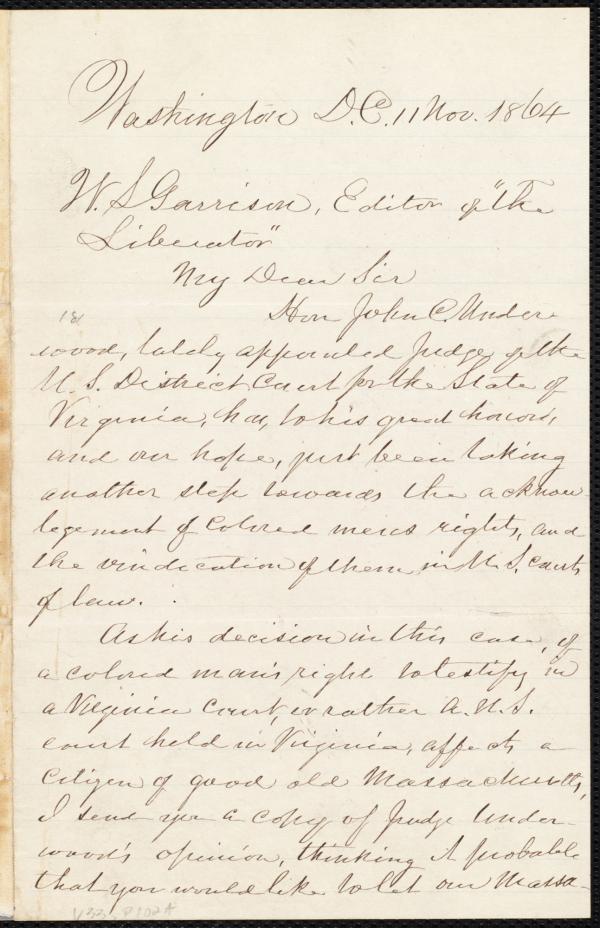 Washington D.C. 11 Nov. 1864
W. L. Garrison, Editor of "The
Liberator"
My Dear Sir
Hon John C. Under-
18
wood, lately appointed Judge of the
U. S. District Court for the State of
Virginia, has, to his great honor,
and our hope, just been taking
another step towards the acknow-
legement of Colored men's rights, and
the vindication of them in U. S. courts
of law.
As his decision in this case, of
a colored man's right to testify in
a Virginia Court, or rather a U. S.
court held in Virginia, affects a
citizen of good old Massachusetts,
I send you a copy of Judge Under-
wood's opinion, thinking it probable
that you would like to let our Massa-